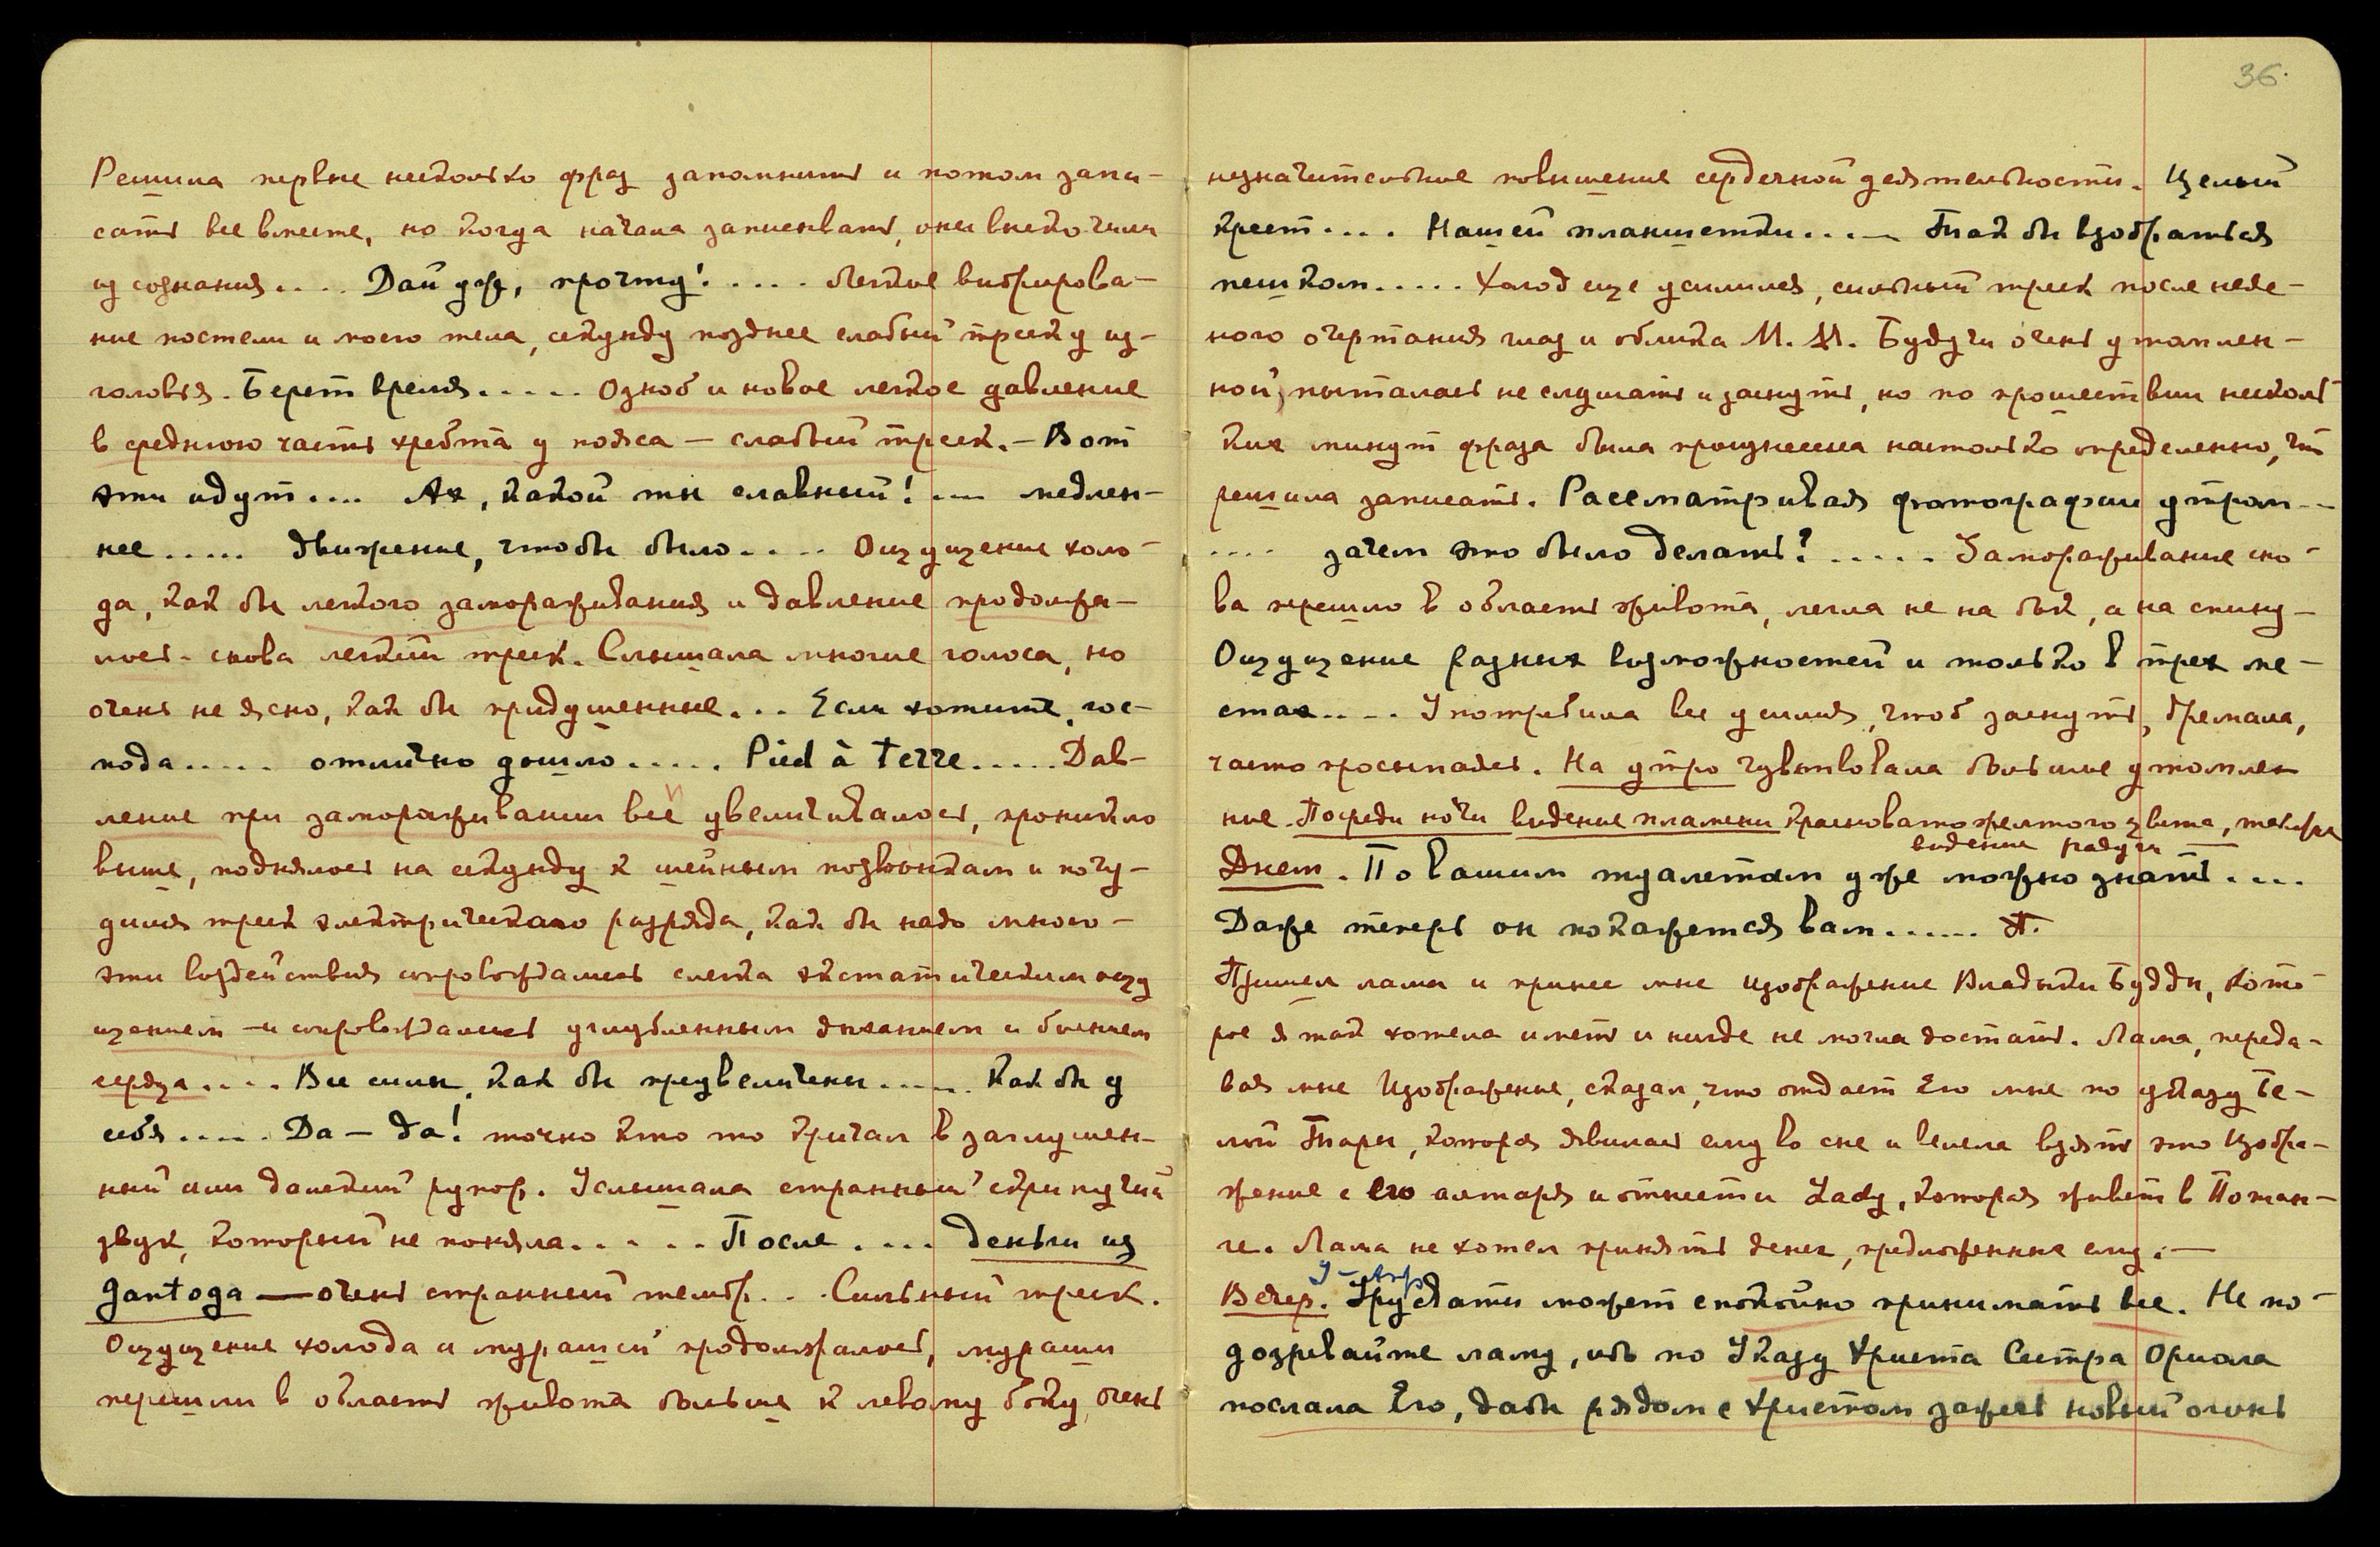 Решила первые несколько фраз запомнить и потом запи-
сать все вместе, но когда начала записывать, они выскочили
из сознания.... Дай уж, прочту!.... Легкое вибрирова-
ние постели и моего тела, секунду позднее слабый треск у из-
головья. Берет время..... Озноб и новое легкое давление
в среднюю часть хребта у пояса — слабый треск. — Вот
эти идут.... Ах, какой ты славный! .... медлен-
нее..... движение, чтобы было..... Ощущение холо-
да, как бы легкого замораживания и давление продолжа-
лось. снова легкий треск. Слышала многие голоса, но
очень не ясно, как бы придушенные... Если хотите, гос-
пода..... отлично дошло..... Pied à terre..... Дав-
ление при замораживании все увеличивалось, проникло
выше, поднялось на секунду к шейным позвонкам и почу-
дился треск электрического разряда, как бы надо много-
эти воздействия сопровождались слегка экстатическим ощу
щением — и сопровождались углубленным дыханием и биением
сердца.... Все силы, как бы преувеличены..... Как бы у
себя..... Да — да! точно кто то кричал в заглушен-
ный или далекий рупор. Услышала странный скрипучий
звук, который не поняла...... После .... деньги из
gantoga — очень странный тембр... Сильный треск.
Ощущение холода и мурашей продолжалось, мураши
перешли в область живота больше к левому боку, очень
36.
незначительное повышение сердечной деятельности. Целый
крест.... Нашей планшетки..... Так бы взобраться
пешком..... Холод еще усилился, сильный треск после неяс-
ного очертания глаз и облика М. М. Будучи очень утомлен-
ной, пыталась не слушать и заснуть, но по прошествии несколь-
ких минут фраза была произнесена настолько определенно, что
решила записать. Рассматривая фотографии утром...
.... зачем это было делать?..... Замораживание сно-
ва перешло в область живота, легла не на бок, а на спину-
Ощущение разных возможностей и только в трех ме-
стах.... Употребила все усилия, чтоб заснуть, дремала,
часто просыпалась. На утро чувствовала большое утомле-
ние. Посреди ночи видение пламени красновато желтого цвета, также
видение радуги
Днем. По вашим туалетам уже можно знать....
Даже теперь он покажется вам......
Пришел лама и принес мне изображение Владыки Будды, кото-
рое я так хотела иметь и нигде не могла достать. Лама, переда-
вая мне Изображение, сказал, что отдает Его мне по указу Бе-
лой Тары, которая явилась ему во сне и велела взять это Изобра-
жение с его алтаря и отнести Lady, которая живет в Потан-
ге. Лама не хотел принять денег, предложенные ему. —
Вечер. Урусвати может спокойно принимать все. Не по-
дозревайте ламу, ибо по Указу Христа Сестра Ориола
послала Его, дабы рядом с Христом зажечь новый огонь